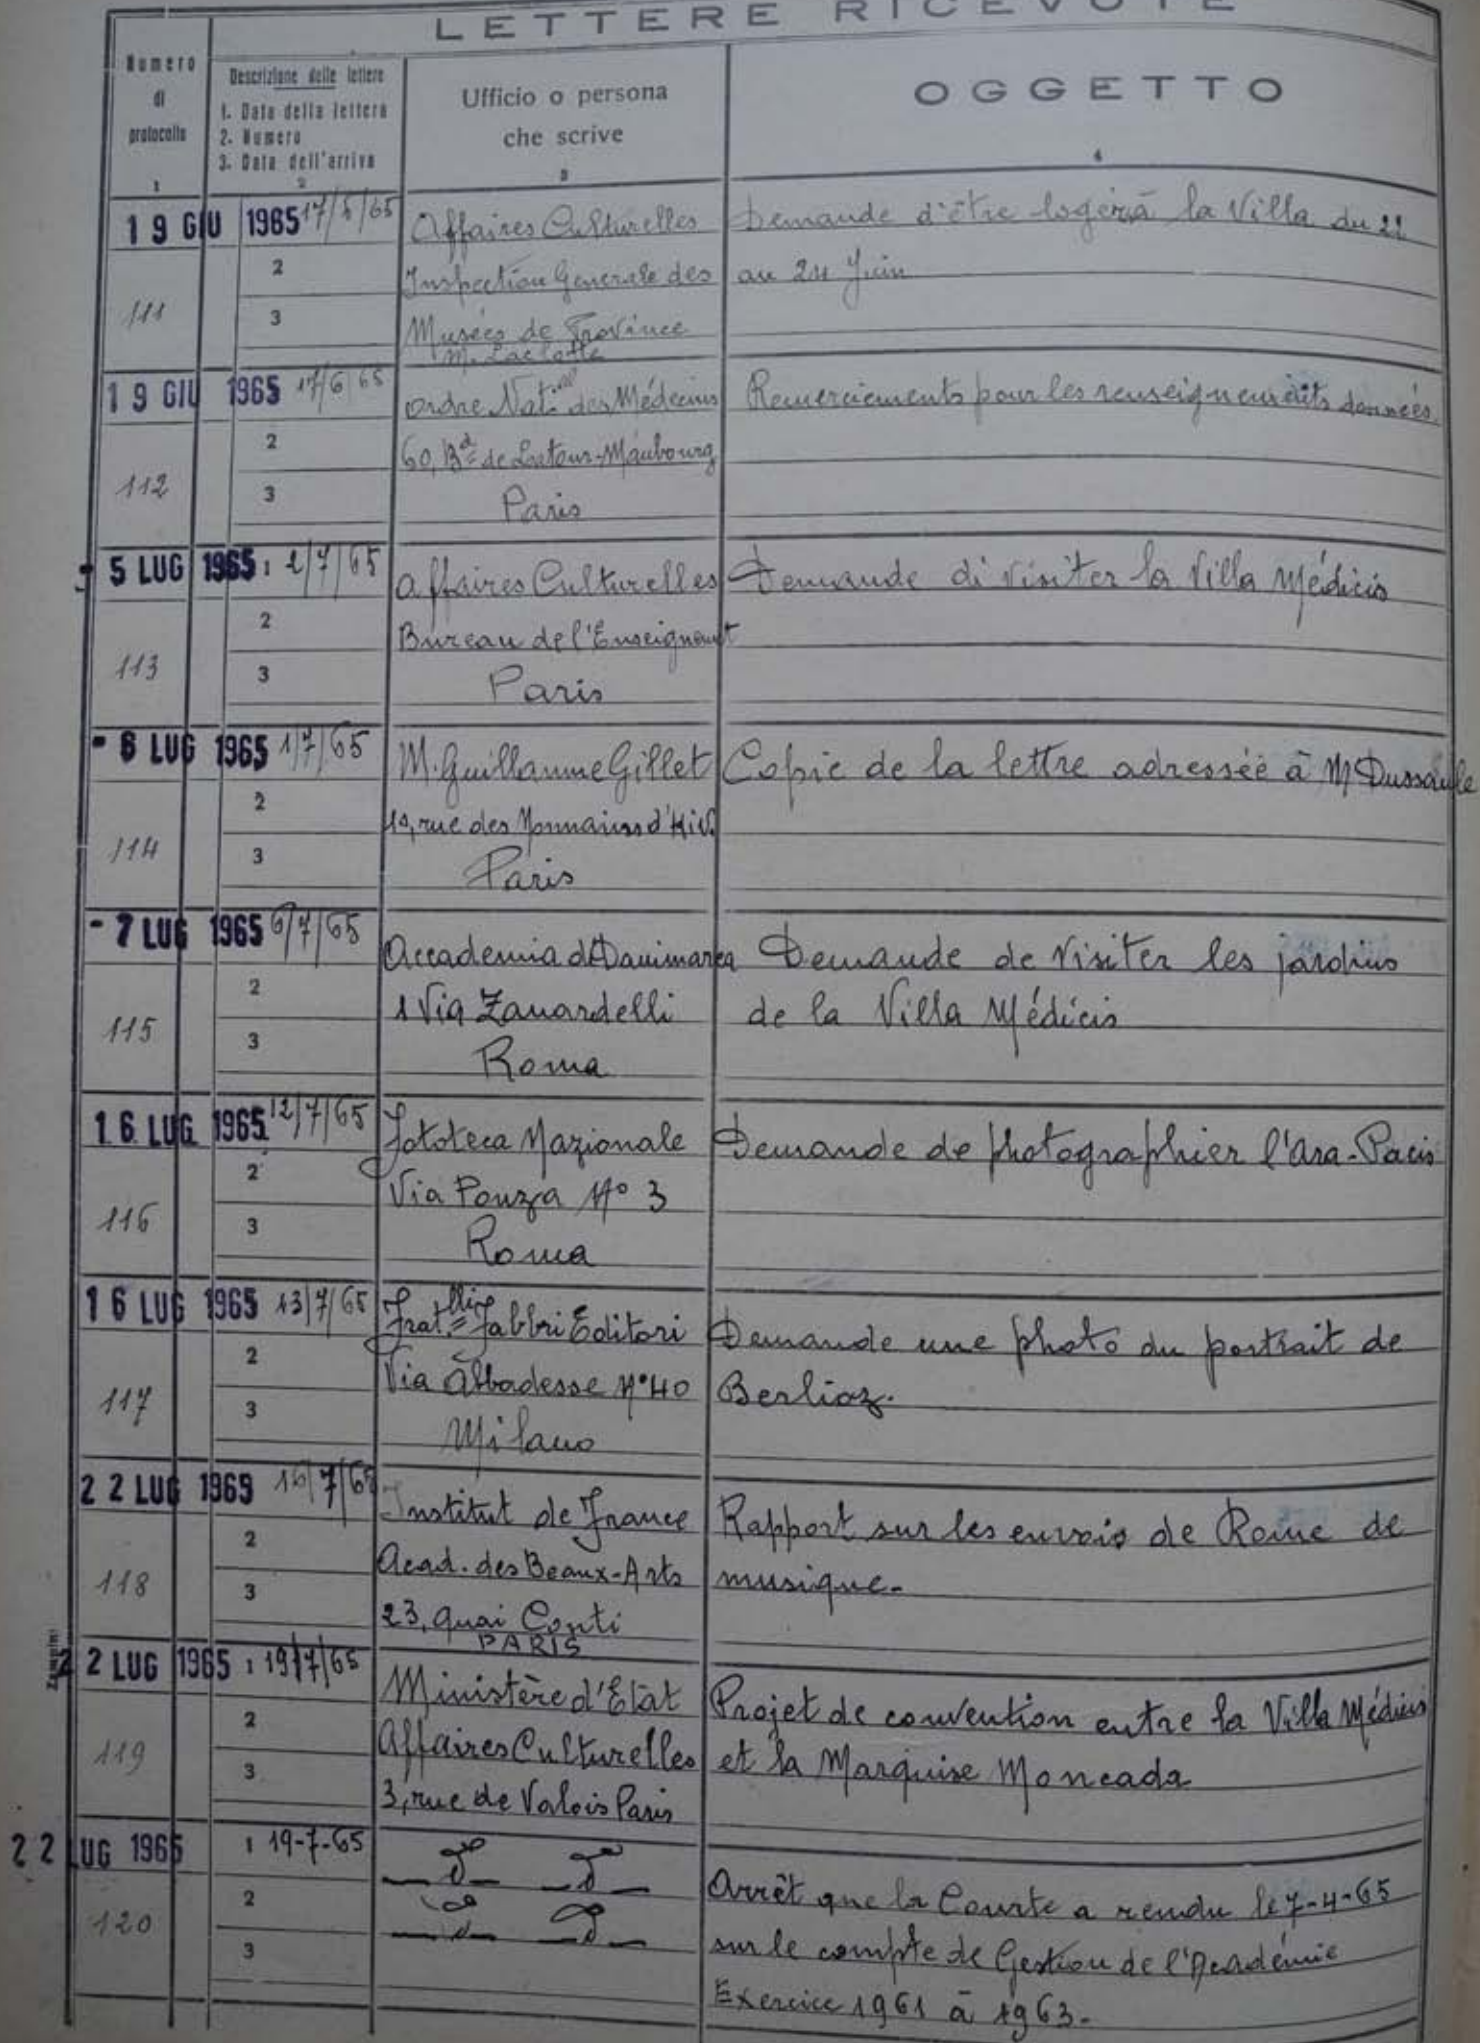 LETTERE RICEVUTE
Numero
di
protocollo
1
Descrizione delle lettere
1. Data della lettera
2. Numero
3. Data dell'arrivo
2
Ufficio o persona
che scrive
3
OGGETTO
4
19 GIU 1965 17/6/65
111
2
3
Affaires Culturelles
Inspection Generale des
Musées de Province
M. Laclotte
Demande d'être loger à la Villa du 22
au 24 Juin
19 GIU 1965 17/6/65
112
2
3
Ordre Nat.al des Médecins
60, Bd de Latour-Maubourg
Paris
Remerciements pour les renseignements données.
5 LUG 1965 1 2/7/65
113
2
3
Affaires Culturelles
Bureau de l'Enseignemt
Paris
Demande di visiter la Villa Médicis
- 6 LUG 1965 1/7/65
114
2
3
M. Guillaume Gillet
rue des
Paris
Copie de la lettre adressée à M Dussaule
- 7 LUG 1965 6/7/65
115
2
3
Accademia di Danimarca
1 Via Zanardelli
Roma
Demande de Visiter les jardins
de la Villa Médicis
16 LUG 1965 12/7/65
116
2
3
Fototeca Nazionale
Via Ponza N° 3
Roma
Demande de photographier l'Ara-Pacis
16 LUG 1965 13/7/65
117
2
3
Frat.lli Fabbri Editori
Via Abbadesse N° 40
Milano
Demande une photo du portrait de
Berlioz.
22 LUG 1965 16/7/65
118
2
3
Institut de France
Acad. des Beaux-Arts
23, quai Conti
PARIS
Rapport sur les envois de Rome de
musique-
22 LUG 1965 1 19/7/65
119
2
3
Ministère d'Etat
Affaires Culturelles
3, rue de Valois Paris
Projet de convention entre la Villa Médicis
et la Marquise Moncada
22 LUG 1965 1 19-7-65
120
2
3
Arrêt que la Courte a rendu le 7-4-65
sur le compte de Gestion de l'Académie
Exercice 1961 à 1963-